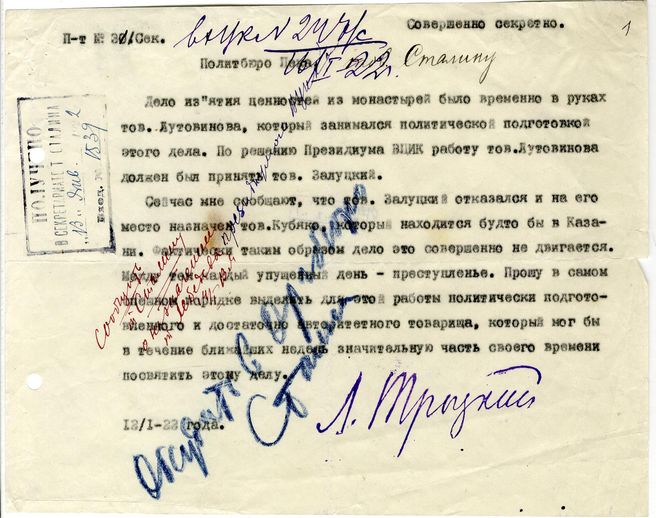 1
Совершенно секретно.
П-т № 30/Сек.
Политбюро Цека.
Сталину
Дело из"ятия ценностей из монастырей было временно в руках
тов.Лутовинова, который занимался политической подготовкой
этого дела. По решению Президиума ВЦИК работу тов.Лутовинова
должен был принять тов. Залуцкий.
Сейчас мне сообщают, что тов. Залуцкий отказался и на его
место назначен тов.Кубяко, который находится будто бы в Каза-
ни. Фактически таким образом дело это совершенно не двигается.
Между тем каждый упущенный день - преступленье. Прошу в самом
спешном порядке выделить для этой работы политически подгото-
вленного и достаточно авторитетного товарища, который мог бы
в течение ближайших недель значительную часть своего времени
посвятить этому делу.
12/I-22 года.
Л. Троцкий
ПОЛУЧЕНО
В СЕКРЕТАРИАТЕ Т. СТАЛИНА
13 янв. 192
Вход. № 1839
Сообщить
т. Сталину
Сталин